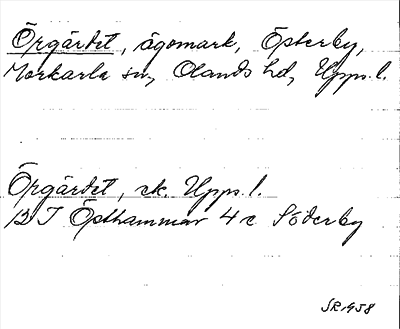 Örgärdet, ägomark, Österby,
Morkarla sn, Olands hd, Upps. l.
Örgärdet, ek. Upps. l.
12 I Östhammar 4 c Söderby
SR 1958